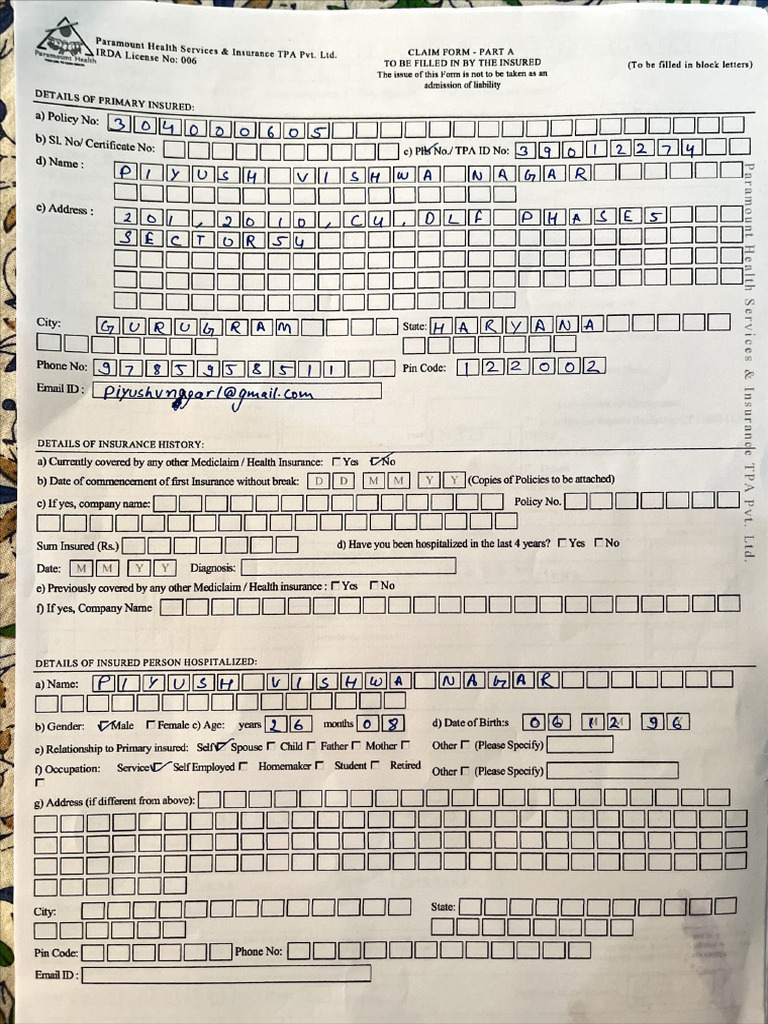 Paramount Health Services & Insurance TPA Pvt. Ltd.
IRDA License No: 006
Paramount Health
CLAIM FORM - PART A
TO BE FILLED IN BY THE INSURED
The issue of this Form is not to be taken as an
admission of liability
(To be filled in block letters)
DETAILS OF PRIMARY INSURED:
a) Policy No: 304000605
b) SI. No/ Certificate No: c) PHS No./ TPA ID No: 39012274
d) Name : PIYUSH VISHWA NAGAR
e) Address : 201, 2010, C4, DLF PHASE5
SECTOR54
City: GURUGRAM State: HARYANA
Phone No: 9785958511 Pin Code: 122002
Email ID : piyushvnagar1@gmail.com
Paramount Health Services & Insurance TPA Pvt. Ltd.
DETAILS OF INSURANCE HISTORY:
a) Currently covered by any other Mediclaim / Health Insurance: Yes No
b) Date of commencement of first Insurance without break: D D M M Y Y (Copies of Policies to be attached)
c) If yes, company name: Policy No.
Sum Insured (Rs.) d) Have you been hospitalized in the last 4 years? Yes No
Date: M M Y Y Diagnosis:
e) Previously covered by any other Mediclaim / Health insurance : Yes No
f) If yes, Company Name
DETAILS OF INSURED PERSON HOSPITALIZED:
a) Name: PIYUSH VISHWA NAGAR
b) Gender: Male Female c) Age: years 26 months 08 d) Date of Birth:s 06 12 96
e) Relationship to Primary insured: Self Spouse Child Father Mother Other (Please Specify)
f) Occupation: Service Self Employed Homemaker Student Retired Other (Please Specify)
g) Address (if different from above):
City: State:
Pin Code: Phone No:
Email ID :